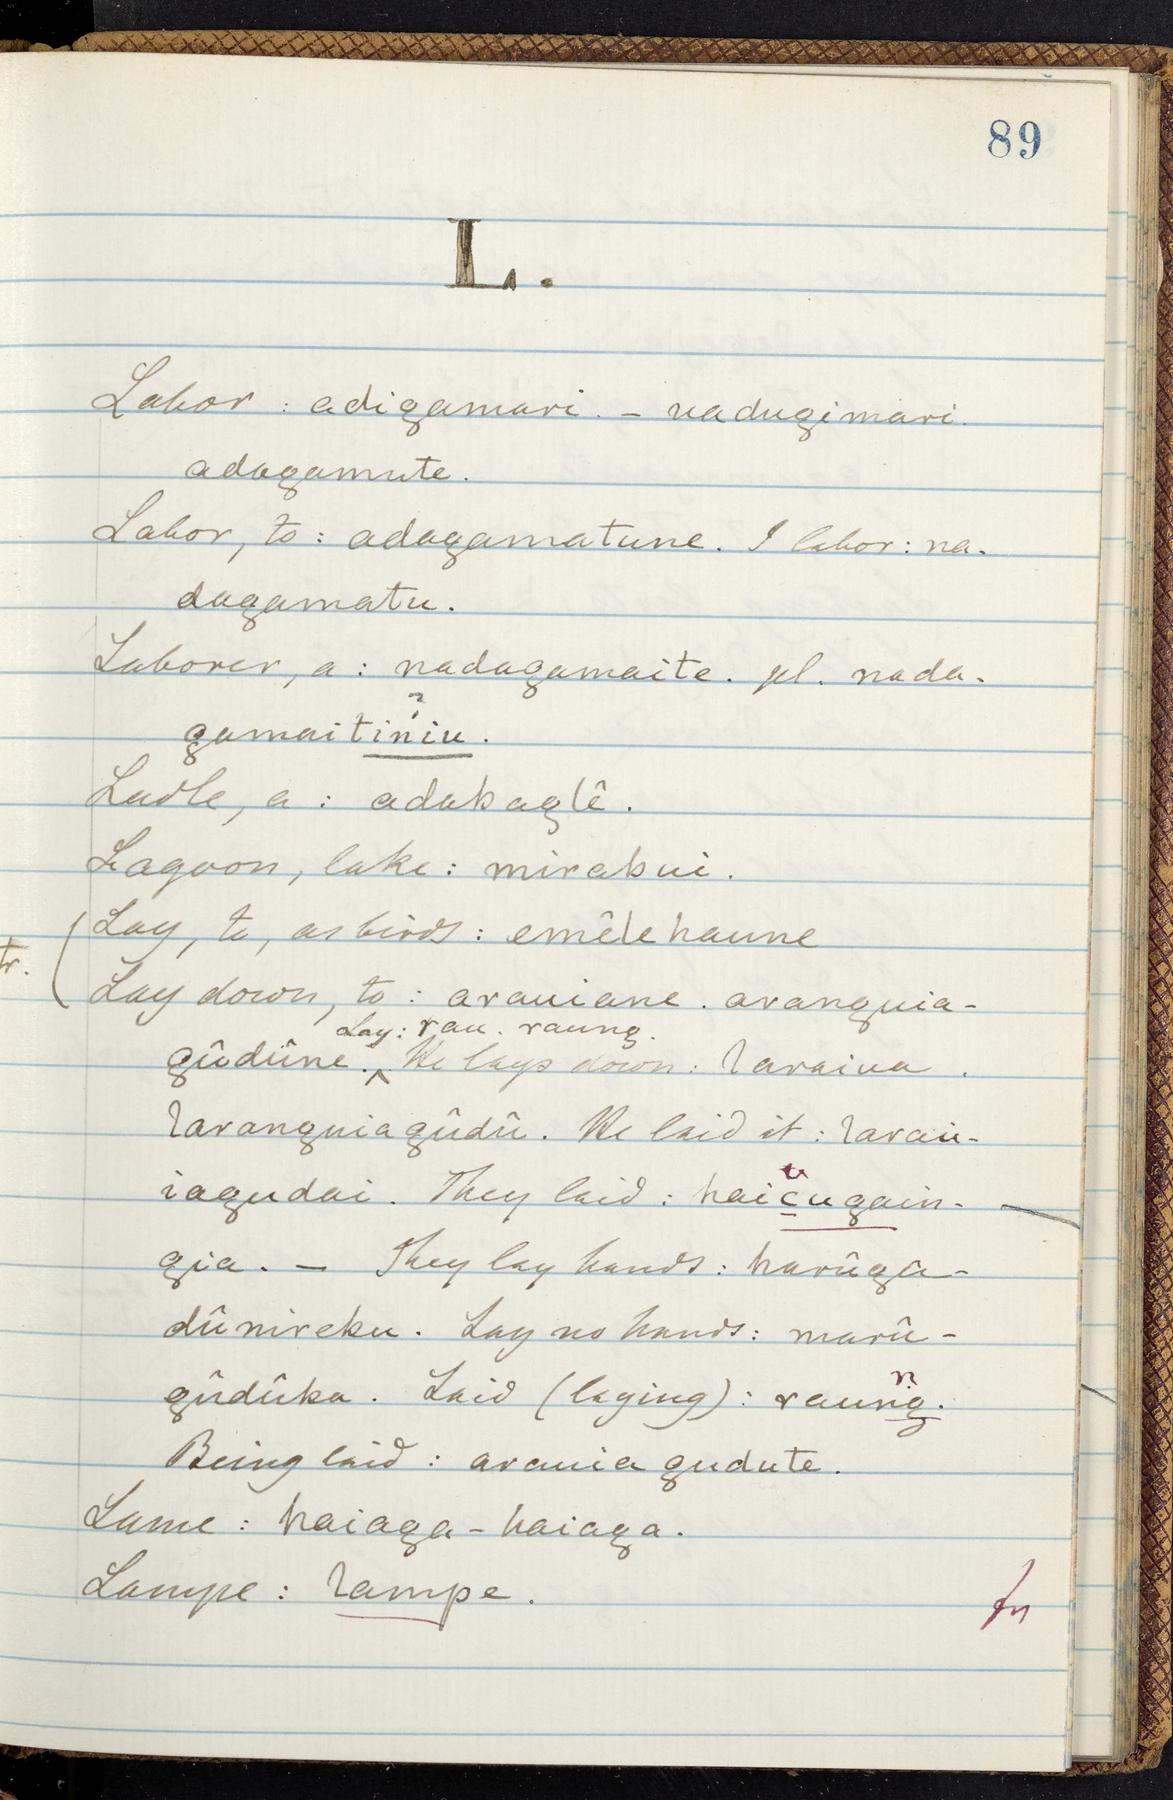 89
L.
Labor : adigamari. – nadugimari.
adagamute.
Labor, to : adagamatune. I labor : na-
dagamatu.
Laborer, a : nadagamaite. pl. nada-
?
gamaitiniu.
Ladle, a : adakaglê.
Lagoon, lake : mirabui.
Lay, to, as birds : emêlehaune
tr.
Lay down, to : arauiane. aranguia-
Lay : rau. raung.
gûdûne. ^ He lays down : laraiua.
laranguiagûdû. He laid it : larau-
iagudai. They laid : haicugain-
gia. – They lay hands : harûgû-
dûnireku. Lay no hands : marû-
gûdûka. Laid (laying) : raung.
n
Being laid : arauiagudute.
Lame : haiaga-haiaga.
Lampe : lampe.